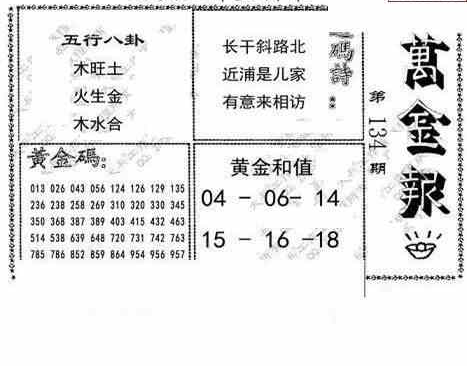 萬金報
第134期
五行八卦
木旺土
火生金
木水合
碼詩：
长干斜路北
近浦是儿家
有意来相访
黃金碼：
013 026 043 056 124 126 129 135
236 238 258 269 310 320 330 345
350 368 387 389 403 415 432 463
514 538 639 648 720 731 742 763
785 786 852 859 864 954 956 957
黄金和值
04 - 06- 14
15 - 16 -18